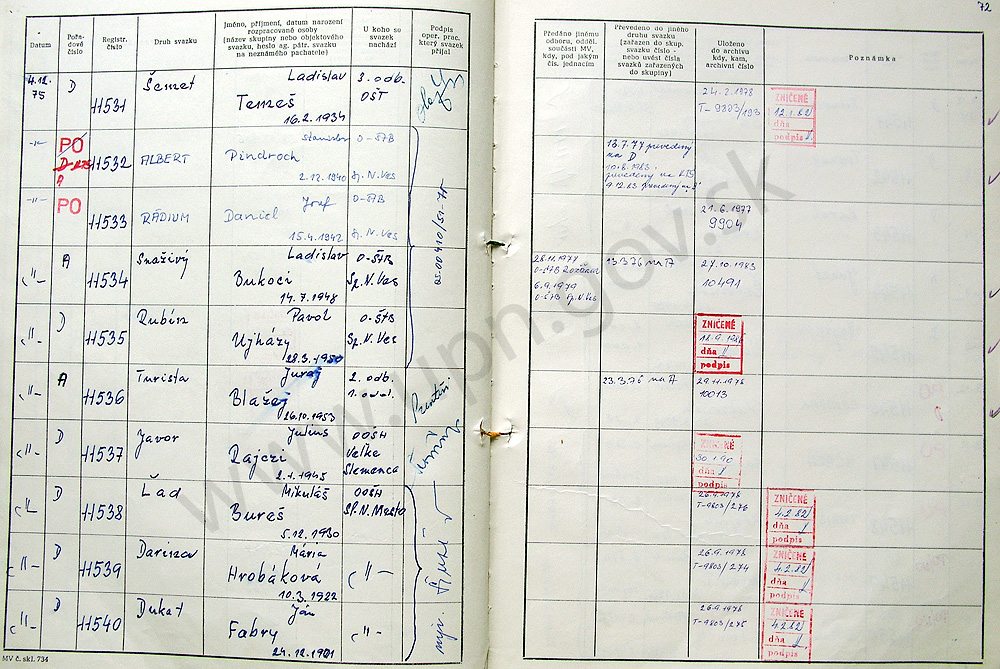 72
Datum
Pořa-
dové
číslo
Registr.
číslo
Druh svazku
Jméno, příjmení, datum narození
rozpracované osoby
(název skupiny nebo objektového
svazku, heslo ag. pátr. svazku
na neznámého pachatele)
U koho se
svazek
nachází
Podpis
oper. prac.
který svazek
přijal
Předáno jinému
odboru, odděl.
součásti MV,
kdy, pod jakým
čís. jednacím
Převedeno do jiného
druhu svazku
(zařazen do skup.
svazku číslo -
nebo uvést čísla
svazků zařazených
do skupiny)
Uloženo
do archivu
kdy, kam,
archivní číslo
Poznámka
4.12.
75
D
11531
Šemet
Ladislav
Temeš
16.2.1934
3. odb.
OŠT
24.2.1978
T-9803/193
ZNIČENÉ
12.1.82
dňa
podpis
-"-
PO
A
11532
ALBERT
Stanislav
Pindroch
2.12.1940
O-ŠTB
Sp.N.Ves
13.7.77 prevedeny
na D
-"-
PO
11533
RÁDIUM
Jozef
Daniel
15.4.1942
O-ŠTB
Sp.N.Ves
21.6.1977
9904
-"-
A
11534
Snaživý
Ladislav
Bukoci
14.7.1948
O-ŠTB
Sp.N.Ves
28.11.1977
O-ŠTB Rožňava
6.9.1979
O-ŠTB Sp.N.Ves
13.3.76 na A
27.10.1983
10491
-"-
D
11535
Rubín
Pavol
Ujházy
28.3.1950
O-ŠTB
Sp.N.Ves
ZNIČENÉ
dňa
podpis
-"-
A
11536
Turista
Juraj
Blažej
26.10.1953
2. odb.
1. odd.
23.3.76 na A
29.11.1976
10013
-"-
D
11537
Javor
Július
Rajczi
2.1.1945
OOŠH
Veľké
Slemence
ZNIČENÉ
30.1.90
dňa
podpis
-"-
D
11538
Ľad
Mikuláš
Bureš
5.12.1930
OOŠH
Sl.N.Mesto
26.9.1978
T-9803/276
ZNIČENÉ
4.2.82
dňa
podpis
-"-
D
11539
Darina
Mária
Hrobáková
10.3.1922
-"-
26.9.1978
T-9803/274
ZNIČENÉ
4.2.82
dňa
podpis
-"-
D
11540
Dukat
Ján
Fabry
24.12.1921
-"-
26.9.1978
T-9803/275
ZNIČENÉ
4.2.82
dňa
podpis
MV č. skl. 734
www.upn.gov.sk